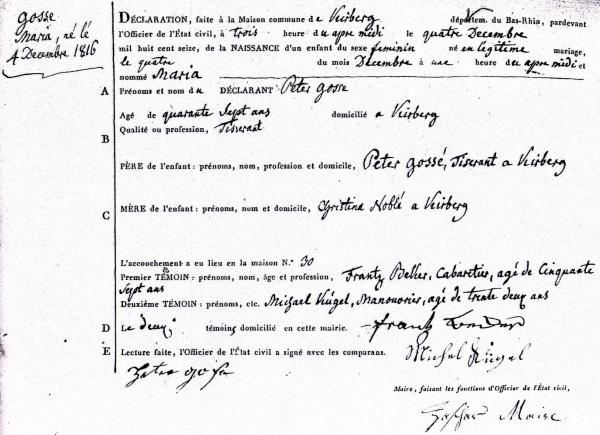 gosse
Maria, né lé
4 Decembre 1816
DÉCLARATION, faite à la Maison commune de Keirberg départem. du Bas-Rhin, pardevant
l'Officier de l'État civil, à trois heure du apre midi le quatre Decembre
mil huit cent seize, de la NAISSANCE d'un enfant du sexe feminin né en legitime mariage,
le quatre du mois Decembre à une heure du apre midi et
nommé Maria
A Prénoms et nom du DÉCLARANT Peter gosse
Agé de quarante Sept ans domicilié a Keirberg
B Qualité ou profession, Tisserant
PÈRE de l'enfant : prénoms, nom, profession et domicile, Peter gossé, Tiserant a Keirberg
C MÈRE de l'enfant : prénoms, nom et domicile, Christina Noblé a Keirberg
L'accouchement a eu lieu en la maison N.° 30
Premier TÉMOIN : prénoms, nom, âge et profession, Frantz Beller, Cabaretier, agé de Cinquante
Sept ans
Deuxième TÉMOIN : prénoms, etc. Michael Kügel, Manouvrier, agé de trente deux ans
D Le deux témoins domicilié en cette mairie.
E Lecture faite, l'Officier de l'État civil a signé avec les comparans.
Michel Kügel
Maire, faisant les fonctions d'Officier de l'État civil,
Maire